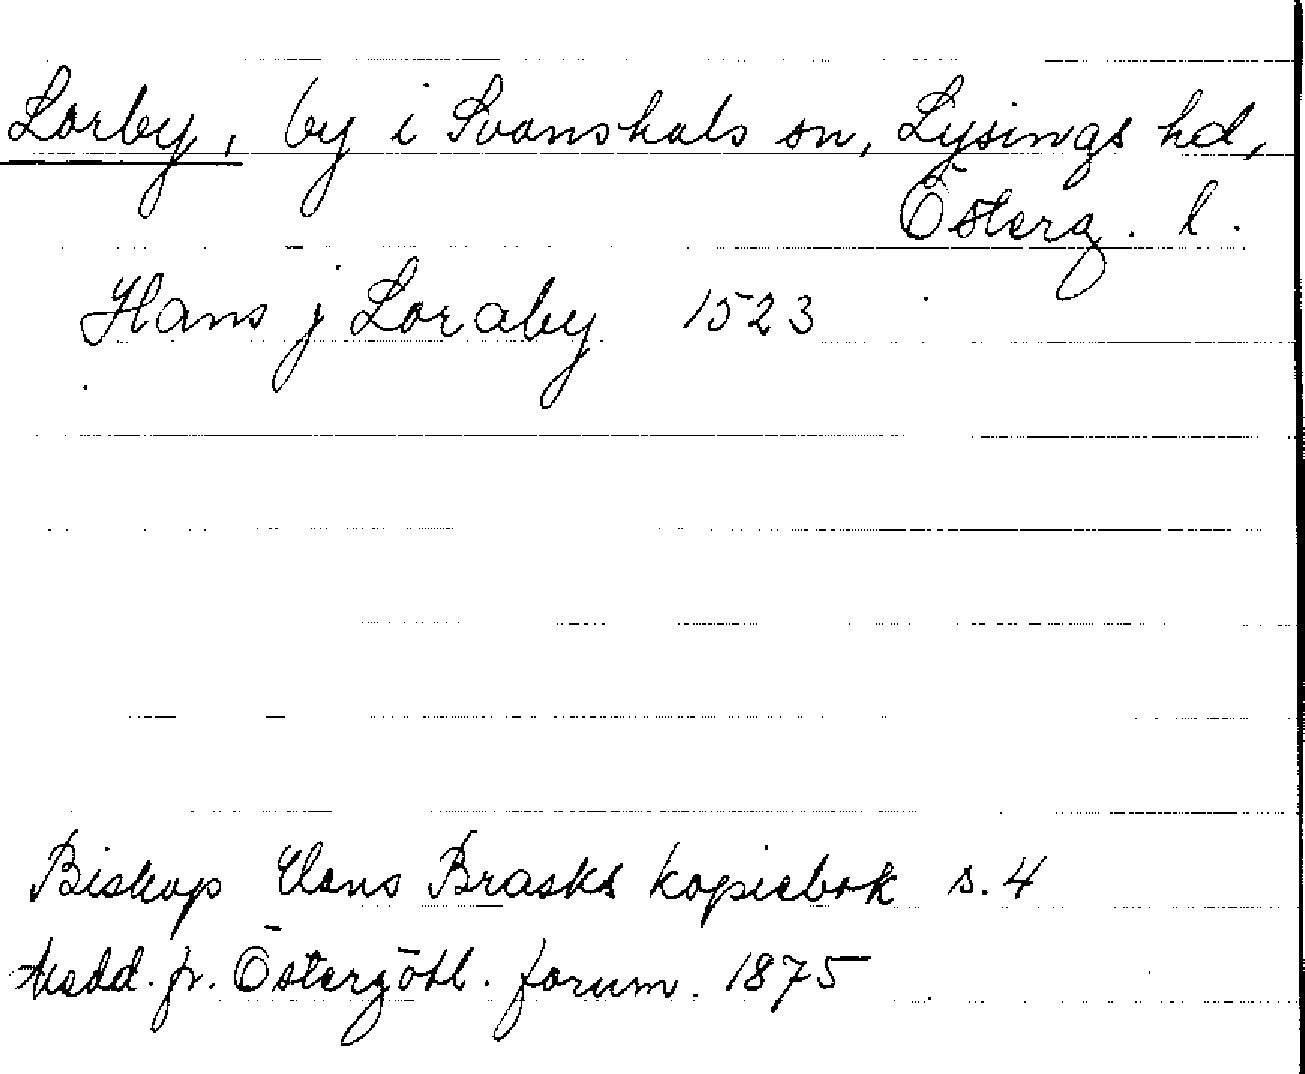 Lorby, by i Svanshals sn, Lysings hd,
Österg. l.
Hans j Loraby 1523
Biskop Hans Brasks kopiebok s. 4
Medd. fr. Östergötl. fornm. 1875